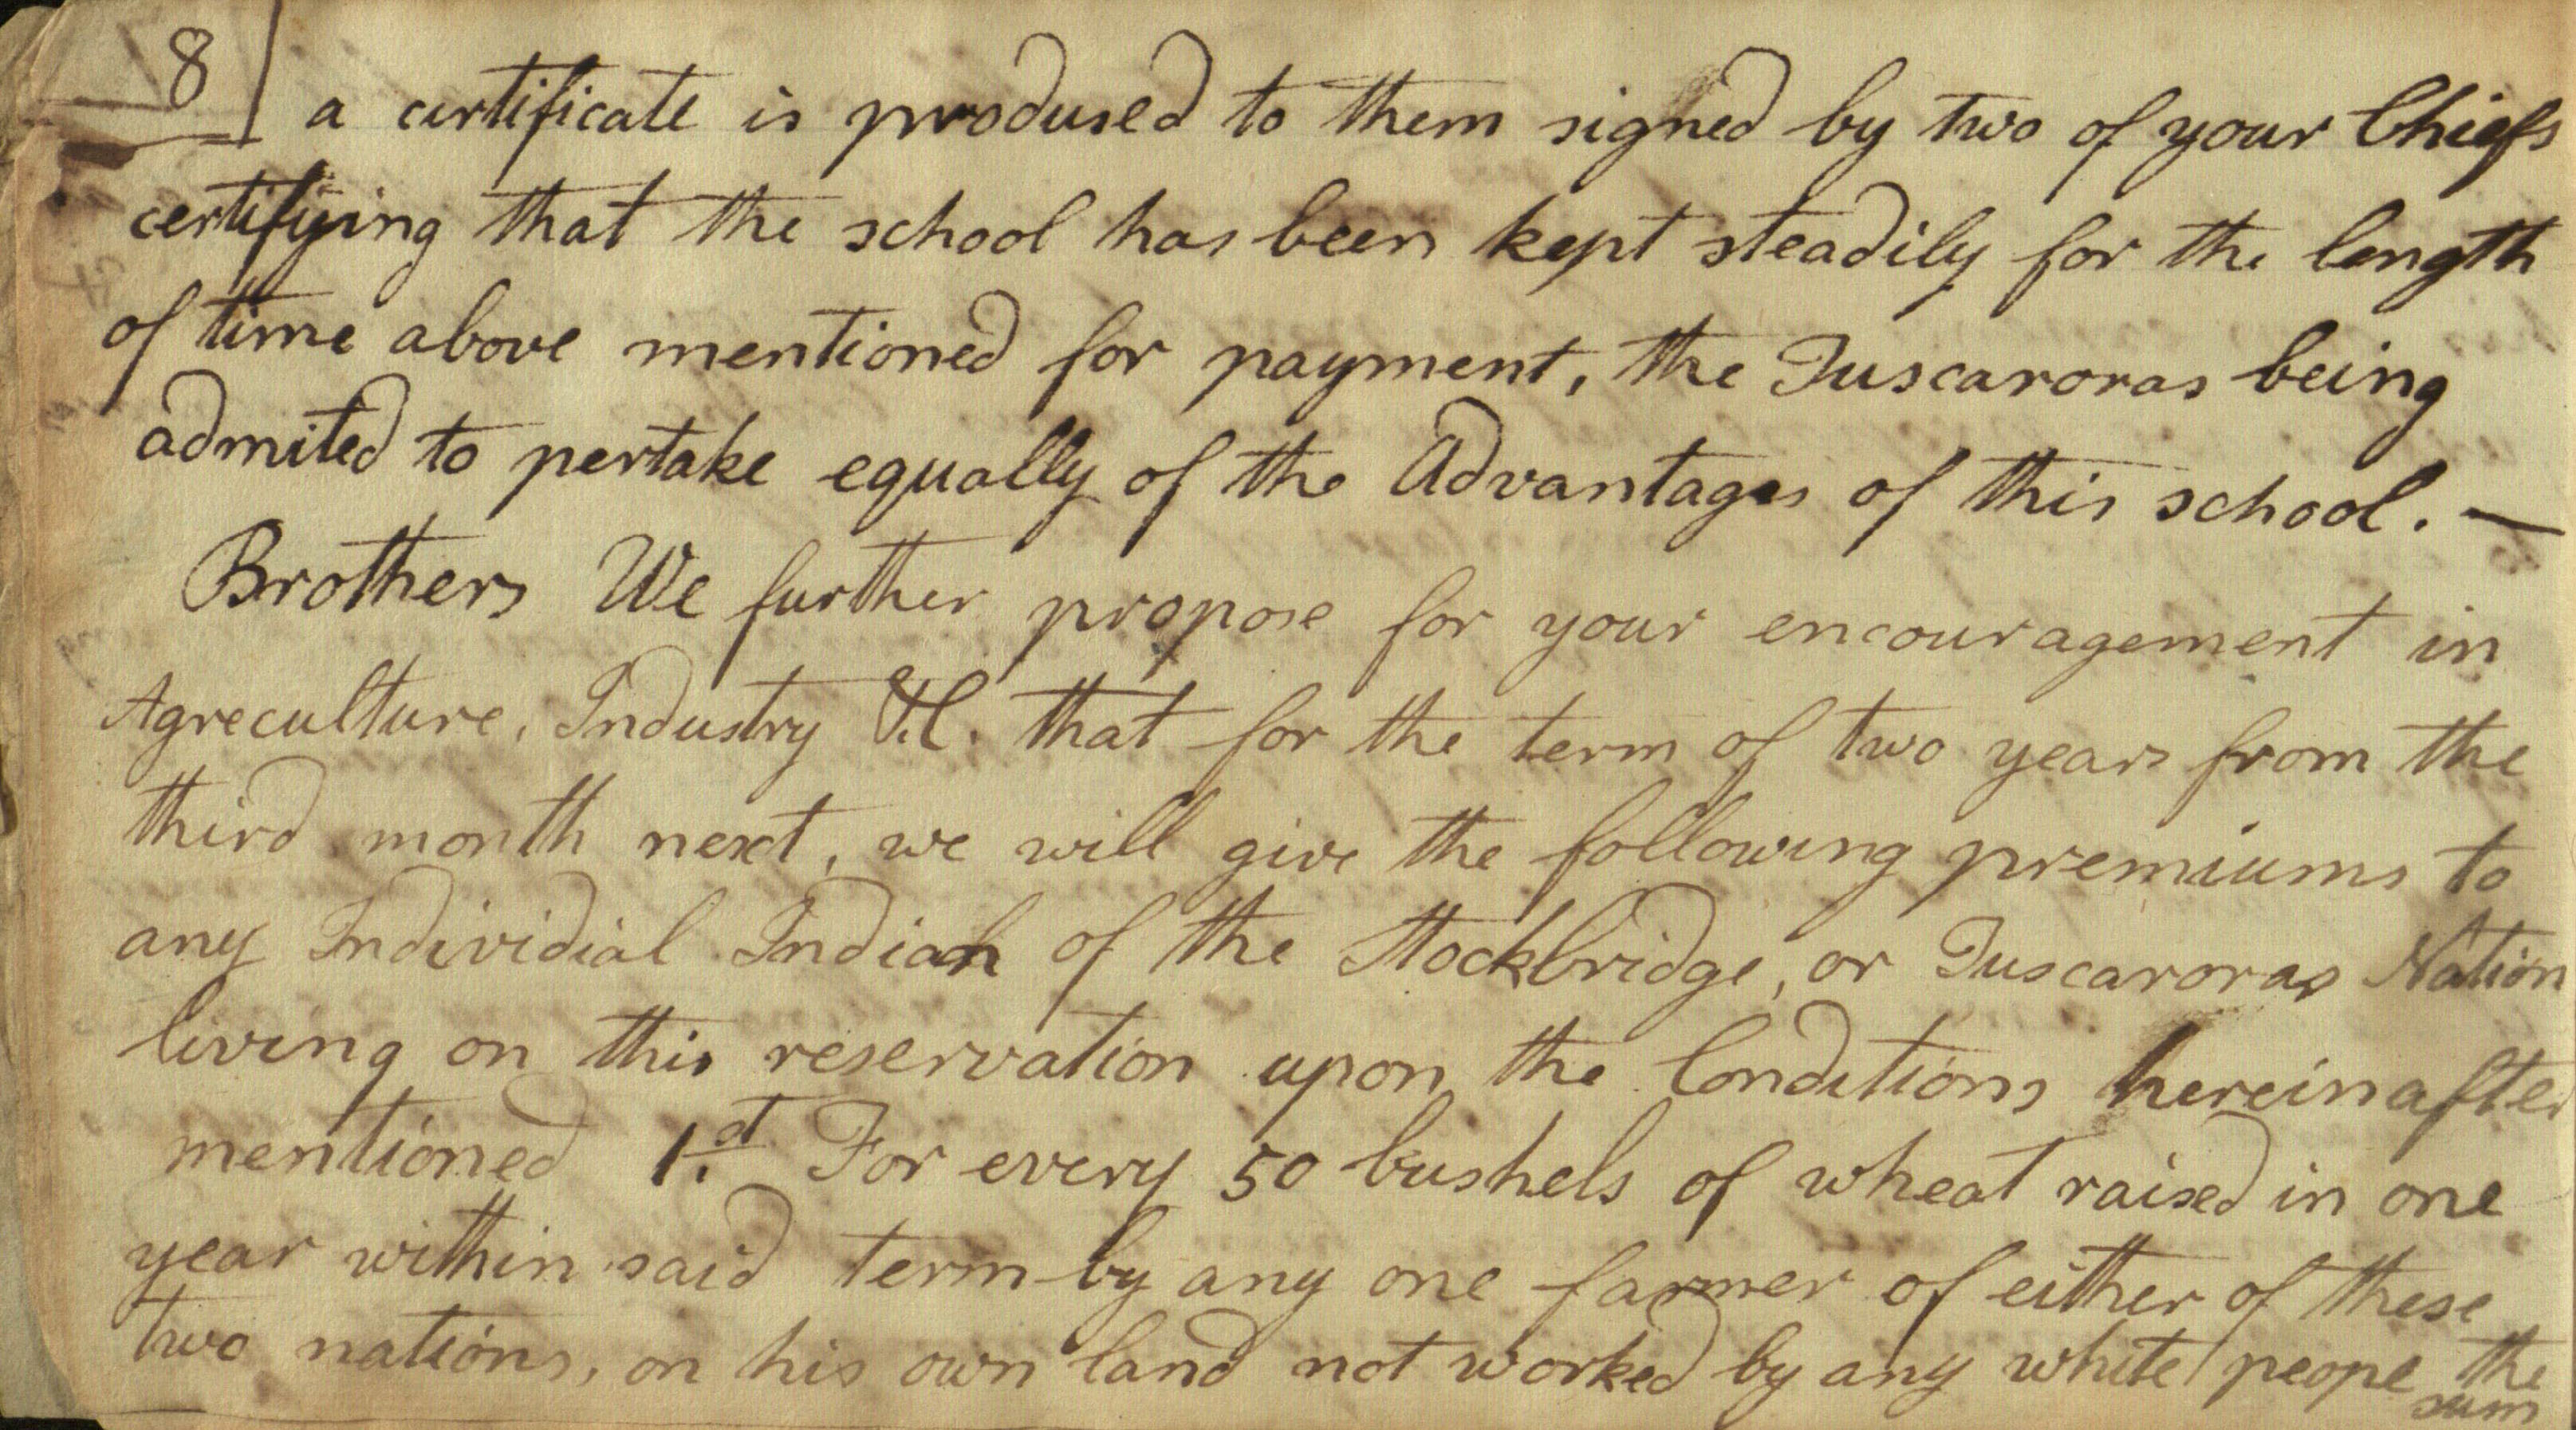 8
a certificate is prodused to them signed by two of your Chiefs
certifying that the school has been kept steadily for the length
of time above mentioned for payment, the Tuscaroras being
admited to pertake equally of the Advantages of this school. —
Brothers We further propose for your encouragement in
Agreculture, Industry &C. that for the term of two years from the
third month next, we will give the following premiums to
any Individial Indian of the Stockbridge, or Tuscaroras Nation
living on this reservation upon the Conditions hereinafter
mentioned 1st For every 50 bushels of wheat raised in one
year within said term by any one farmer of either of these
two nations, on his own land not worked by any white peope the
sum